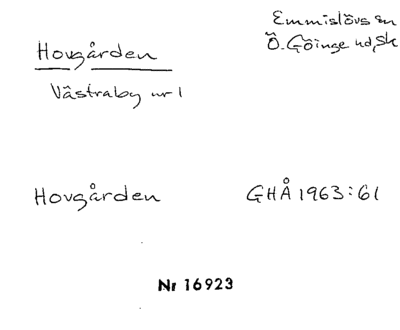 Emmislövs sn
Ö. Göinge hd, Sk
Hovgården
Västraby nr 1
Hovgården GHÅ 1963:61
Nr 16923